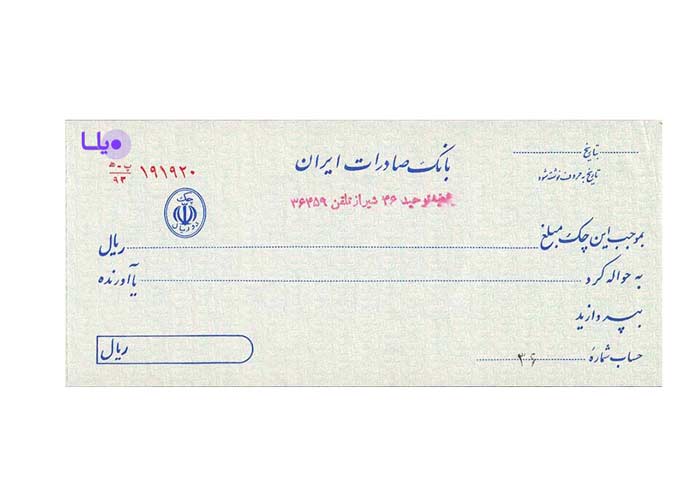 ویلسا
بتاریخ
تاریخ به حروف نوشته شود
بانک صادرات ایران
۱۹۱۹۲۰
۹۳
توحید ۴۶ شیراز تلفن ۳۶۴۵۹
چک
دو ریال
بموجب این چک مبلغ ریال
به حواله کرد یا آورنده
بپردازید
ریال
حساب شماره ۳۶